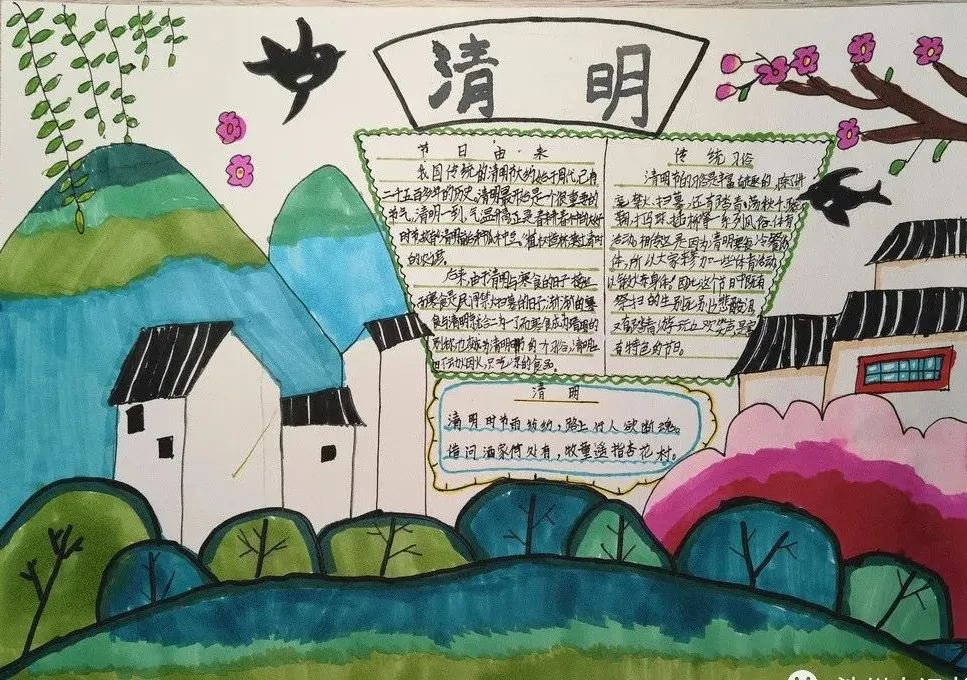 清 明
节 日 由 来
我国传统的清明节大约始于周代,已有
二千五百多年的历史。清明最开始是一个很重要的
节气,清明一到,气温升高正是春耕春种的大好
时节故有清明前后种瓜种豆。植树造林莫过清明
的
后来,由于清明与寒食的日子接近
而寒食是民间禁火扫墓的日子渐渐的寒
食与清明就合二为一了而寒食成为清明的
别称也成为清明时节的一个习俗,清明之
日不动烟火,只吃凉的食品。
传 统 习俗
清明节的习俗是丰富有趣的,除了讲
究禁火、扫墓,还有踏青、荡秋千、蹴
鞠、打马球、插柳等一系列风俗体育
活动。相传这是因为清明要寒食
体,所以大家来参加一些体育活动
以锻炼身体。因此这个节日中既有
祭扫的生别死别的悲酸泪
又有踏青游玩的欢笑声是
有特色的节日。
清 明
清明时节雨纷纷,路上行人欲断魂。
借问酒家何处有,牧童遥指杏花村。